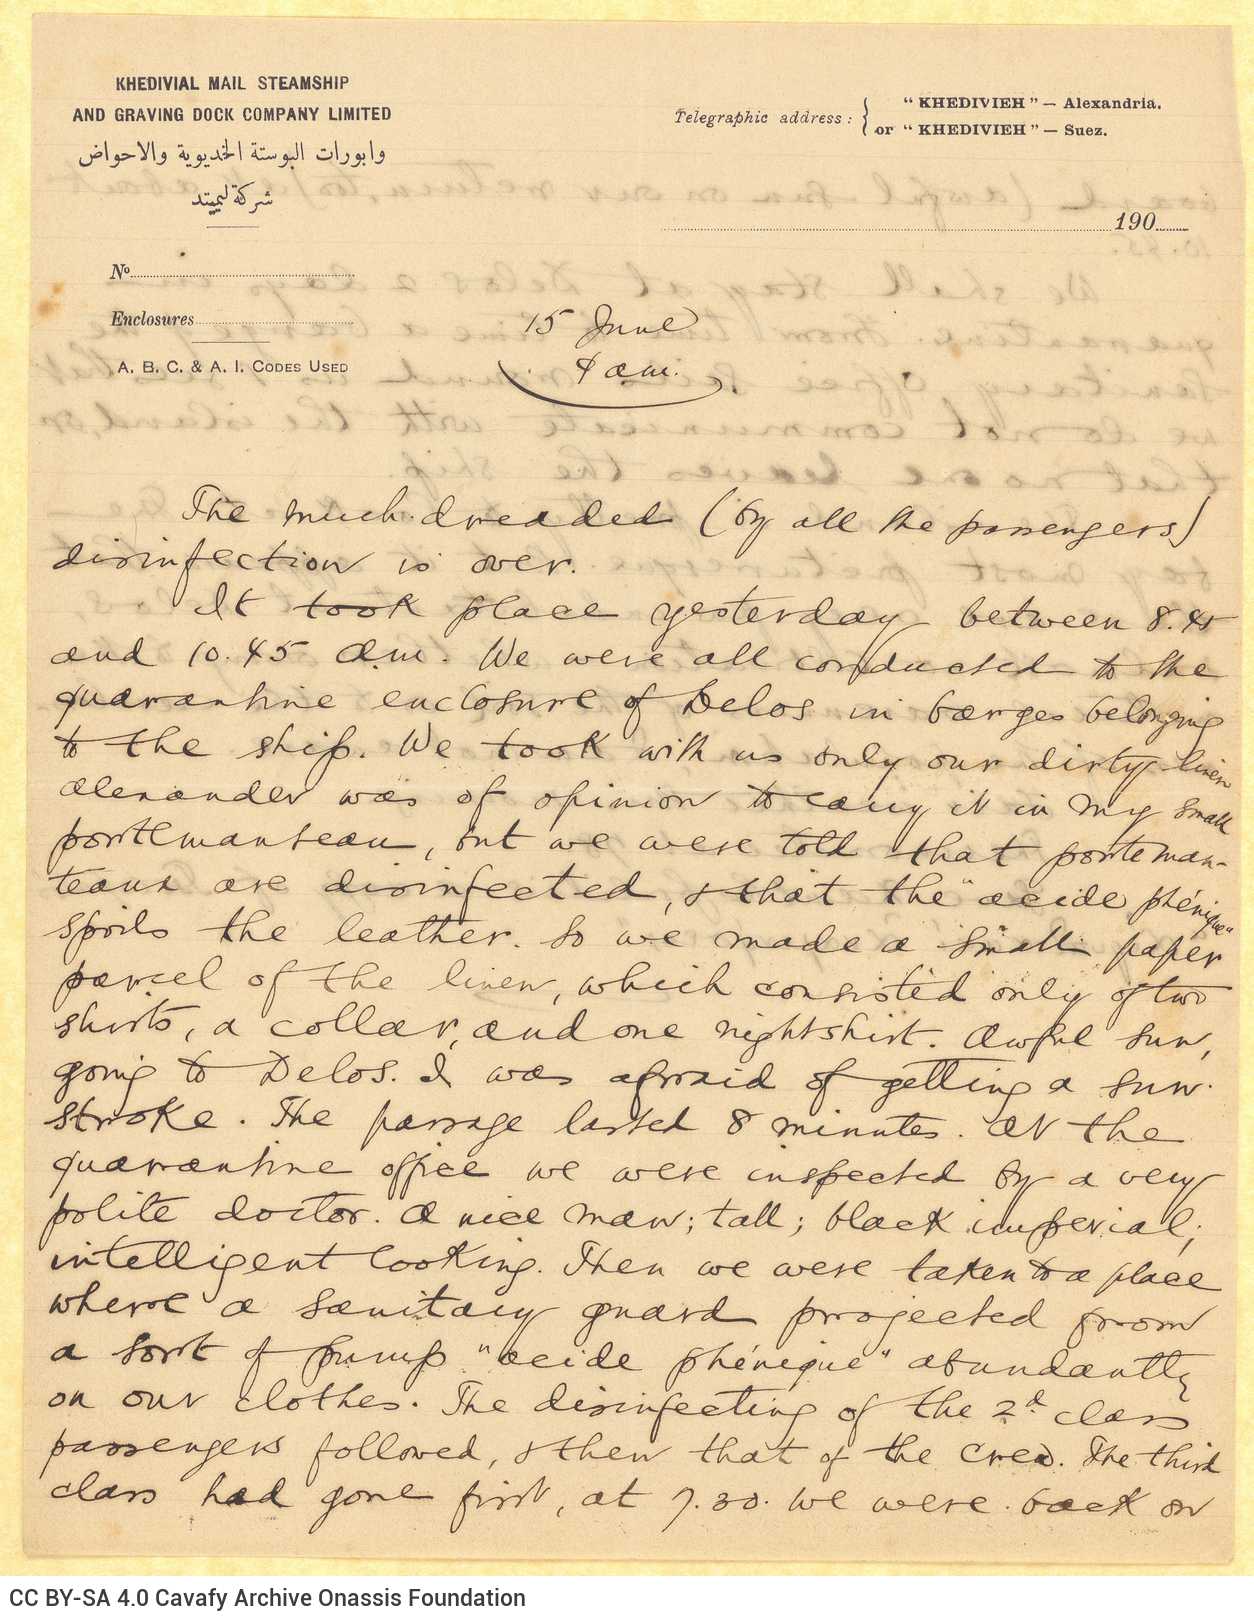 KHEDIVIAL MAIL STEAMSHIP
AND GRAVING DOCK COMPANY LIMITED
وابورات البوستة الخديوية والاحواض
شركة ليميتد
Telegraphic address: { "KHEDIVIEH" – Alexandria.
or "KHEDIVIEH" – Suez.
190
No
Enclosures
A. B. C. & A. I. CODES USED
15 June
9 am.
The much-dreaded (by all the passengers)
disinfection is over.
It took place yesterday between 8.45
and 10.45 a.m. We were all conducted to the
quarantine enclosure of Delos in barges belonging
to the ship. We took with us only our dirty linen
Alexander was of opinion to carry it in my small
portemanteau, but we were told that porteman-
teaux are disinfected, & that the "acide phénique"
spoils the leather. So we made a small paper
parcel of the linen, which consisted only of two
shirts, a collar, and one nightshirt. Awful sun,
going to Delos. I was afraid of getting a sun-
stroke. The passage lasted 8 minutes. At the
quarantine office we were inspected by a very
polite doctor. A nice man; tall; black imperial;
intelligent looking. Then we were taken to a place
where a sanitary guard projected from
a sort of pump "acide phénique" abundantly
on our clothes. The disinfecting of the 2d class
passengers followed, & then that of the crew. The third
class had gone first, at 7.30. We were back on
CC BY-SA 4.0 Cavafy Archive Onassis Foundation